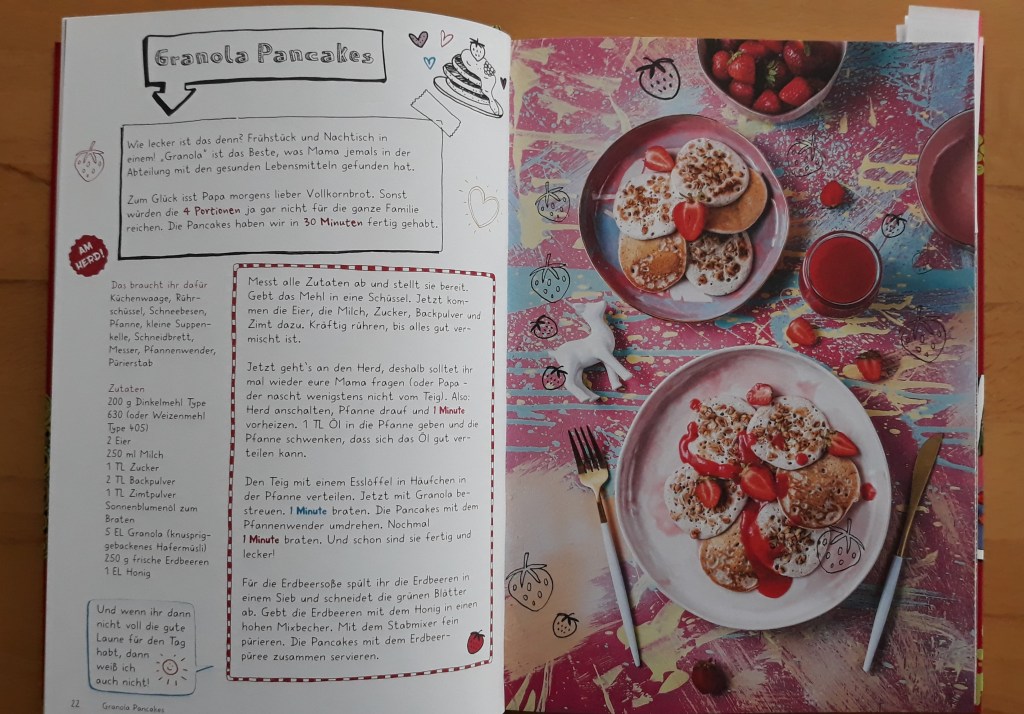 Granola Pancakes
Wie lecker ist das denn? Frühstück und Nachtisch in
einem! „Granola" ist das Beste, was Mama jemals in der
Abteilung mit den gesunden Lebensmitteln gefunden hat.
Zum Glück isst Papa morgens lieber Vollkornbrot. Sonst
würden die 4 Portionen ja gar nicht für die ganze Familie
reichen. Die Pancakes haben wir in 30 Minuten fertig gehabt.
AM
HERD!
Das braucht ihr dafür
Küchenwaage, Rühr-
schüssel, Schneebesen,
Pfanne, kleine Suppen-
kelle, Schneidbrett,
Messer, Pfannenwender,
Pürierstab
Zutaten
200 g Dinkelmehl Type
630 (oder Weizenmehl
Type 405)
2 Eier
250 ml Milch
1 TL Zucker
2 TL Backpulver
1 TL Zimtpulver
Sonnenblumenöl zum
Braten
5 EL Granola (knusprig-
gebackenes Hafermüsli)
250 g frische Erdbeeren
1 EL Honig
Und wenn ihr dann
nicht voll die gute
Laune für den Tag
habt, dann
weiß ich
auch nicht!
Messt alle Zutaten ab und stellt sie bereit.
Gebt das Mehl in eine Schüssel. Jetzt kom-
men die Eier, die Milch, Zucker, Backpulver und
Zimt dazu. Kräftig rühren, bis alles gut ver-
mischt ist.
Jetzt geht's an den Herd, deshalb solltet ihr
mal wieder eure Mama fragen (oder Papa -
der nascht wenigstens nicht vom Teig). Also:
Herd anschalten, Pfanne drauf und 1 Minute
vorheizen. 1 TL Öl in die Pfanne geben und die
Pfanne schwenken, dass sich das Öl gut ver-
teilen kann.
Den Teig mit einem Esslöffel in Häufchen in
der Pfanne verteilen. Jetzt mit Granola be-
streuen. 1 Minute braten. Die Pancakes mit dem
Pfannenwender umdrehen. Nochmal
1 Minute braten. Und schon sind sie fertig und
lecker!
Für die Erdbeersoße spült ihr die Erdbeeren in
einem Sieb und schneidet die grünen Blätter
ab. Gebt die Erdbeeren mit dem Honig in einen
hohen Mixbecher. Mit dem Stabmixer fein
pürieren. Die Pancakes mit dem Erdbeer-
püree zusammen servieren.
22 Granola Pancakes